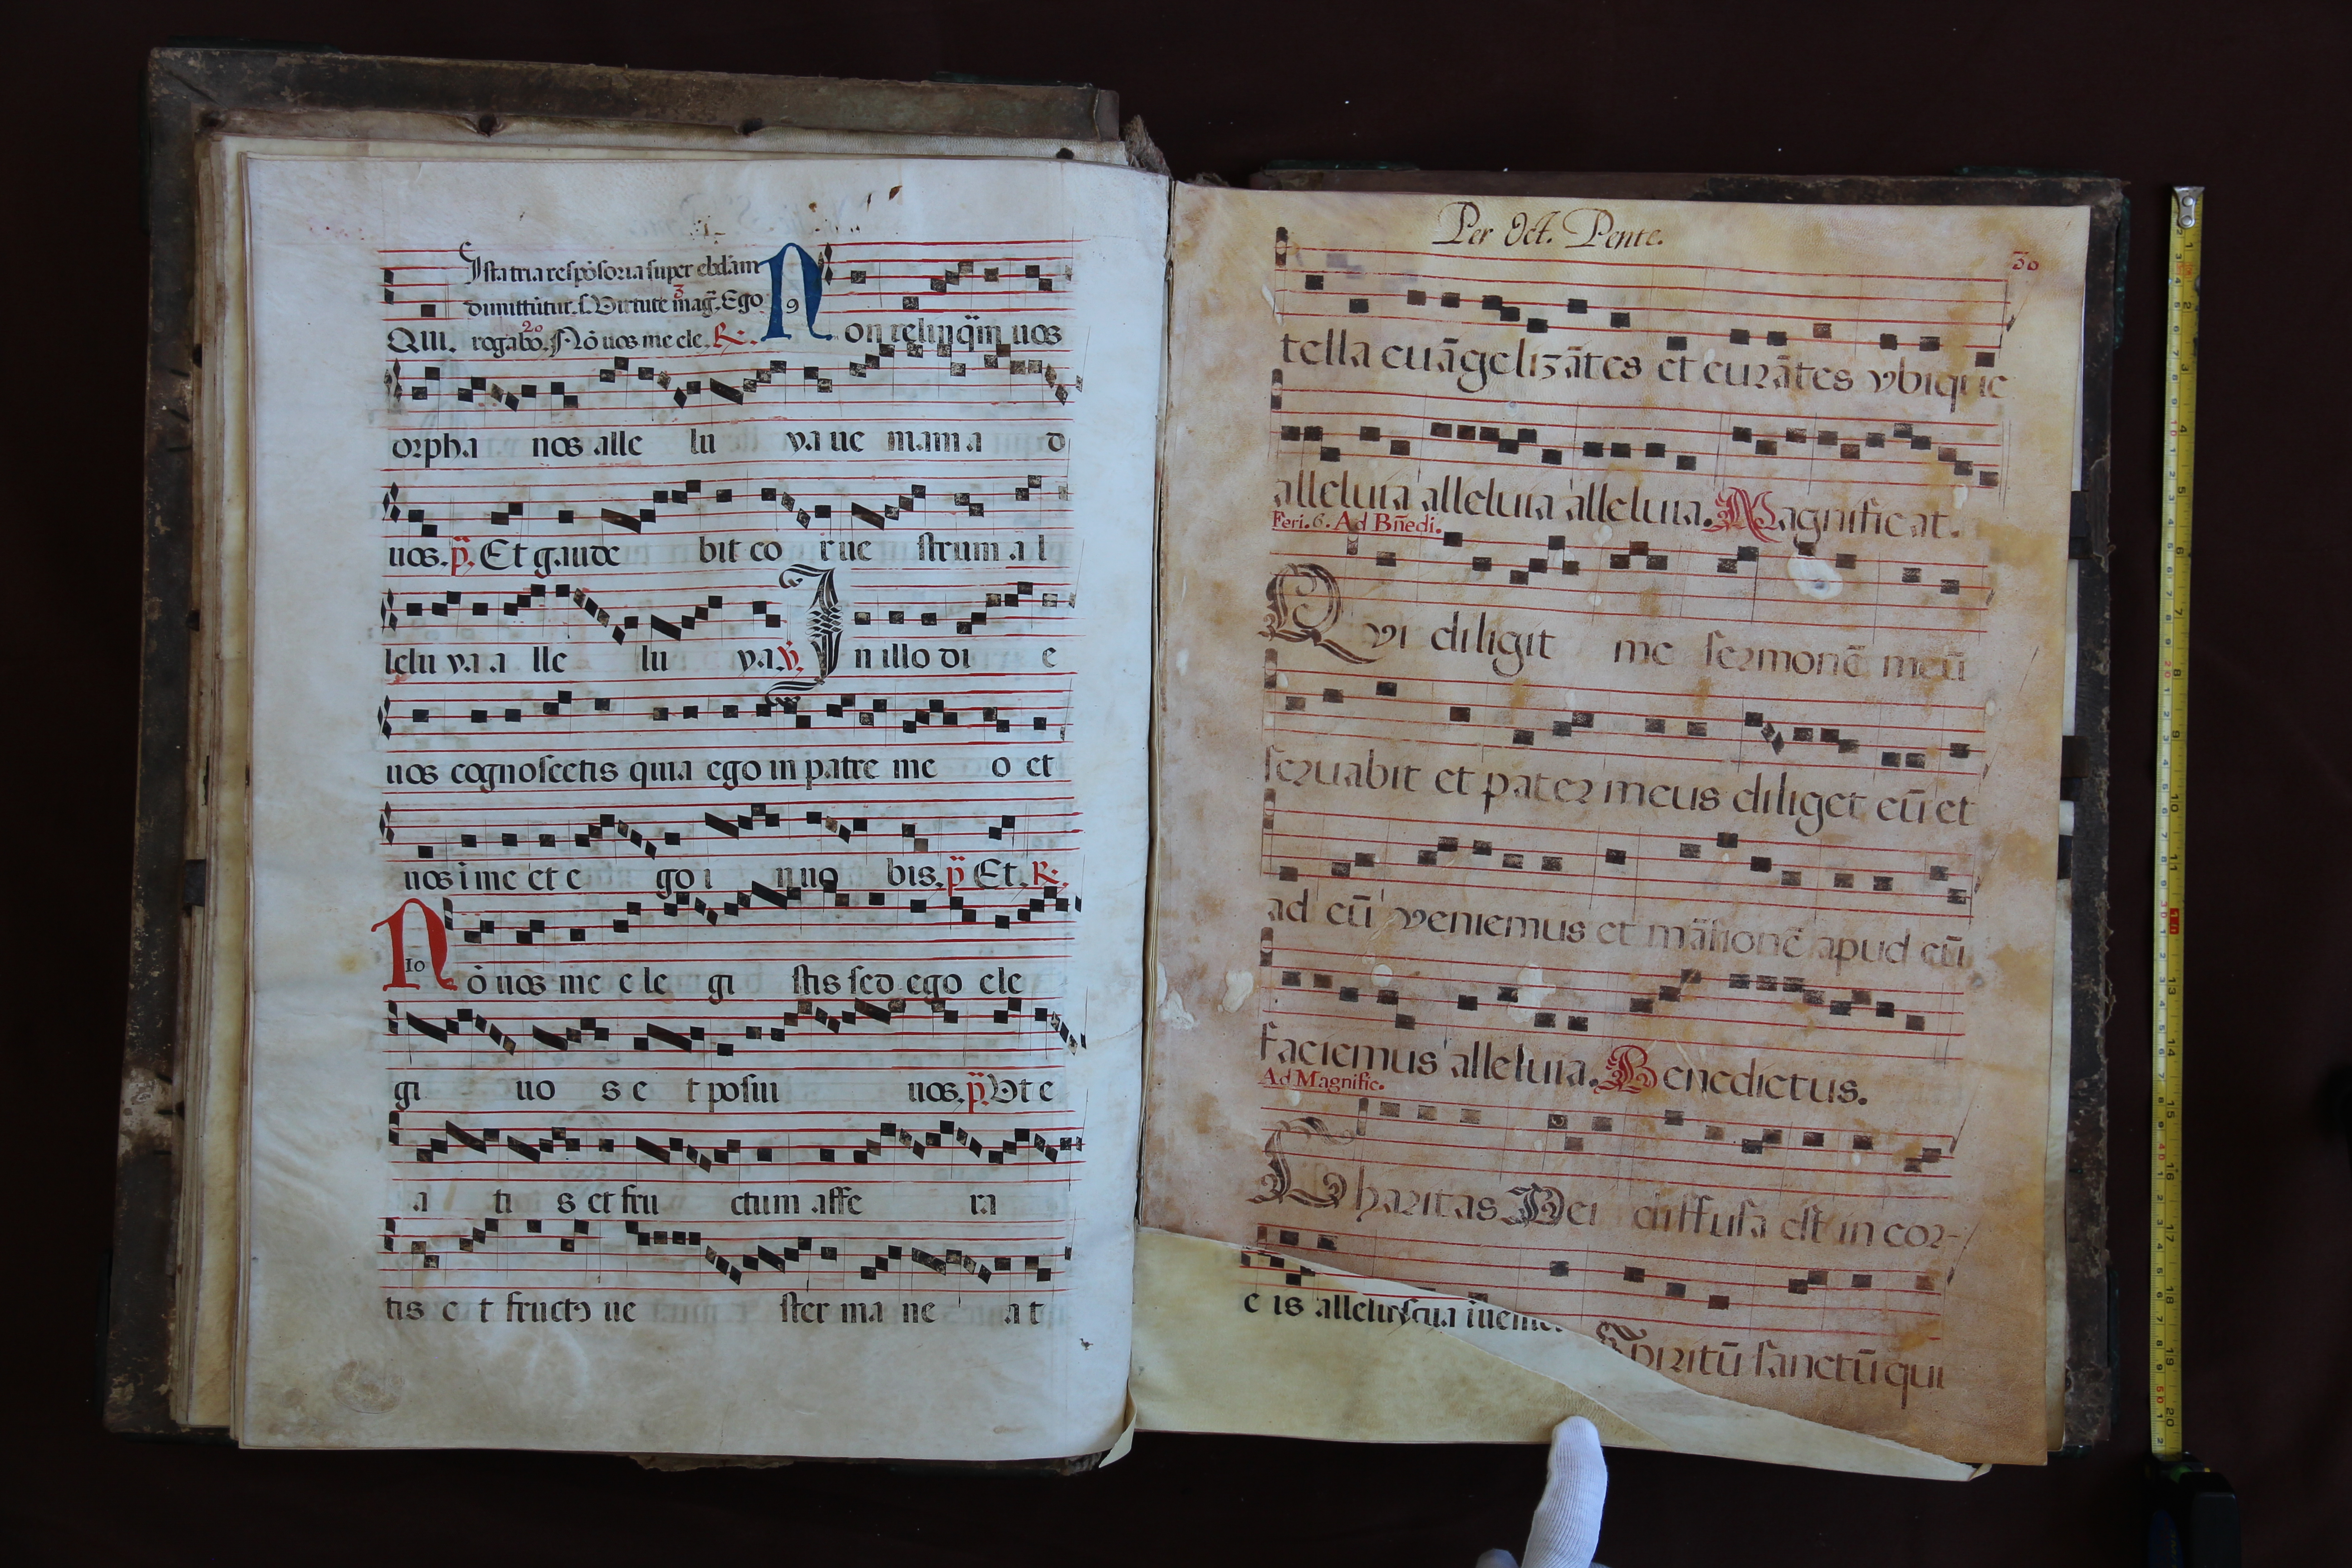 Ista tria respōsoria super ebdām
dimittūtur. s. Virtute mag̃. Ego
3
QUI. rogabo. Nō uos me ele. R.
20
9
Non relinq̄m uos
orpha nos alle lu ya ue niam a d
uos. p̈. Et gaude bit co r ue strum al
lelu ya a lle lu ya. v̈. In illo di e
uos cognoscetis quia ego in patre me o et
uos i me et e go i n uo bis. p̈ Et. R.
10
Nō uos me e le gi stis sed ego ele
gi uo s e t posui uos. p̈. Vt e
a ti s et fru ctum affe ra
tis e t fructꝯ ue ster ma ne at
Per Oct. Pente.
30
tella euāgelizātes et curātes vbique
alleluia alleluia alleluia. Magnificat.
Feri. 6. Ad Bn̄edi.
Qvi diligit me sermonē meū
seruabit et pater meus diliget eū et
ad eū veniemus et māsionē apud eū
faciemus alleluia. Benedictus.
Ad Magnific.
Charitas Dei diffusa est in cor-
e is
Spiritū sanctū qui